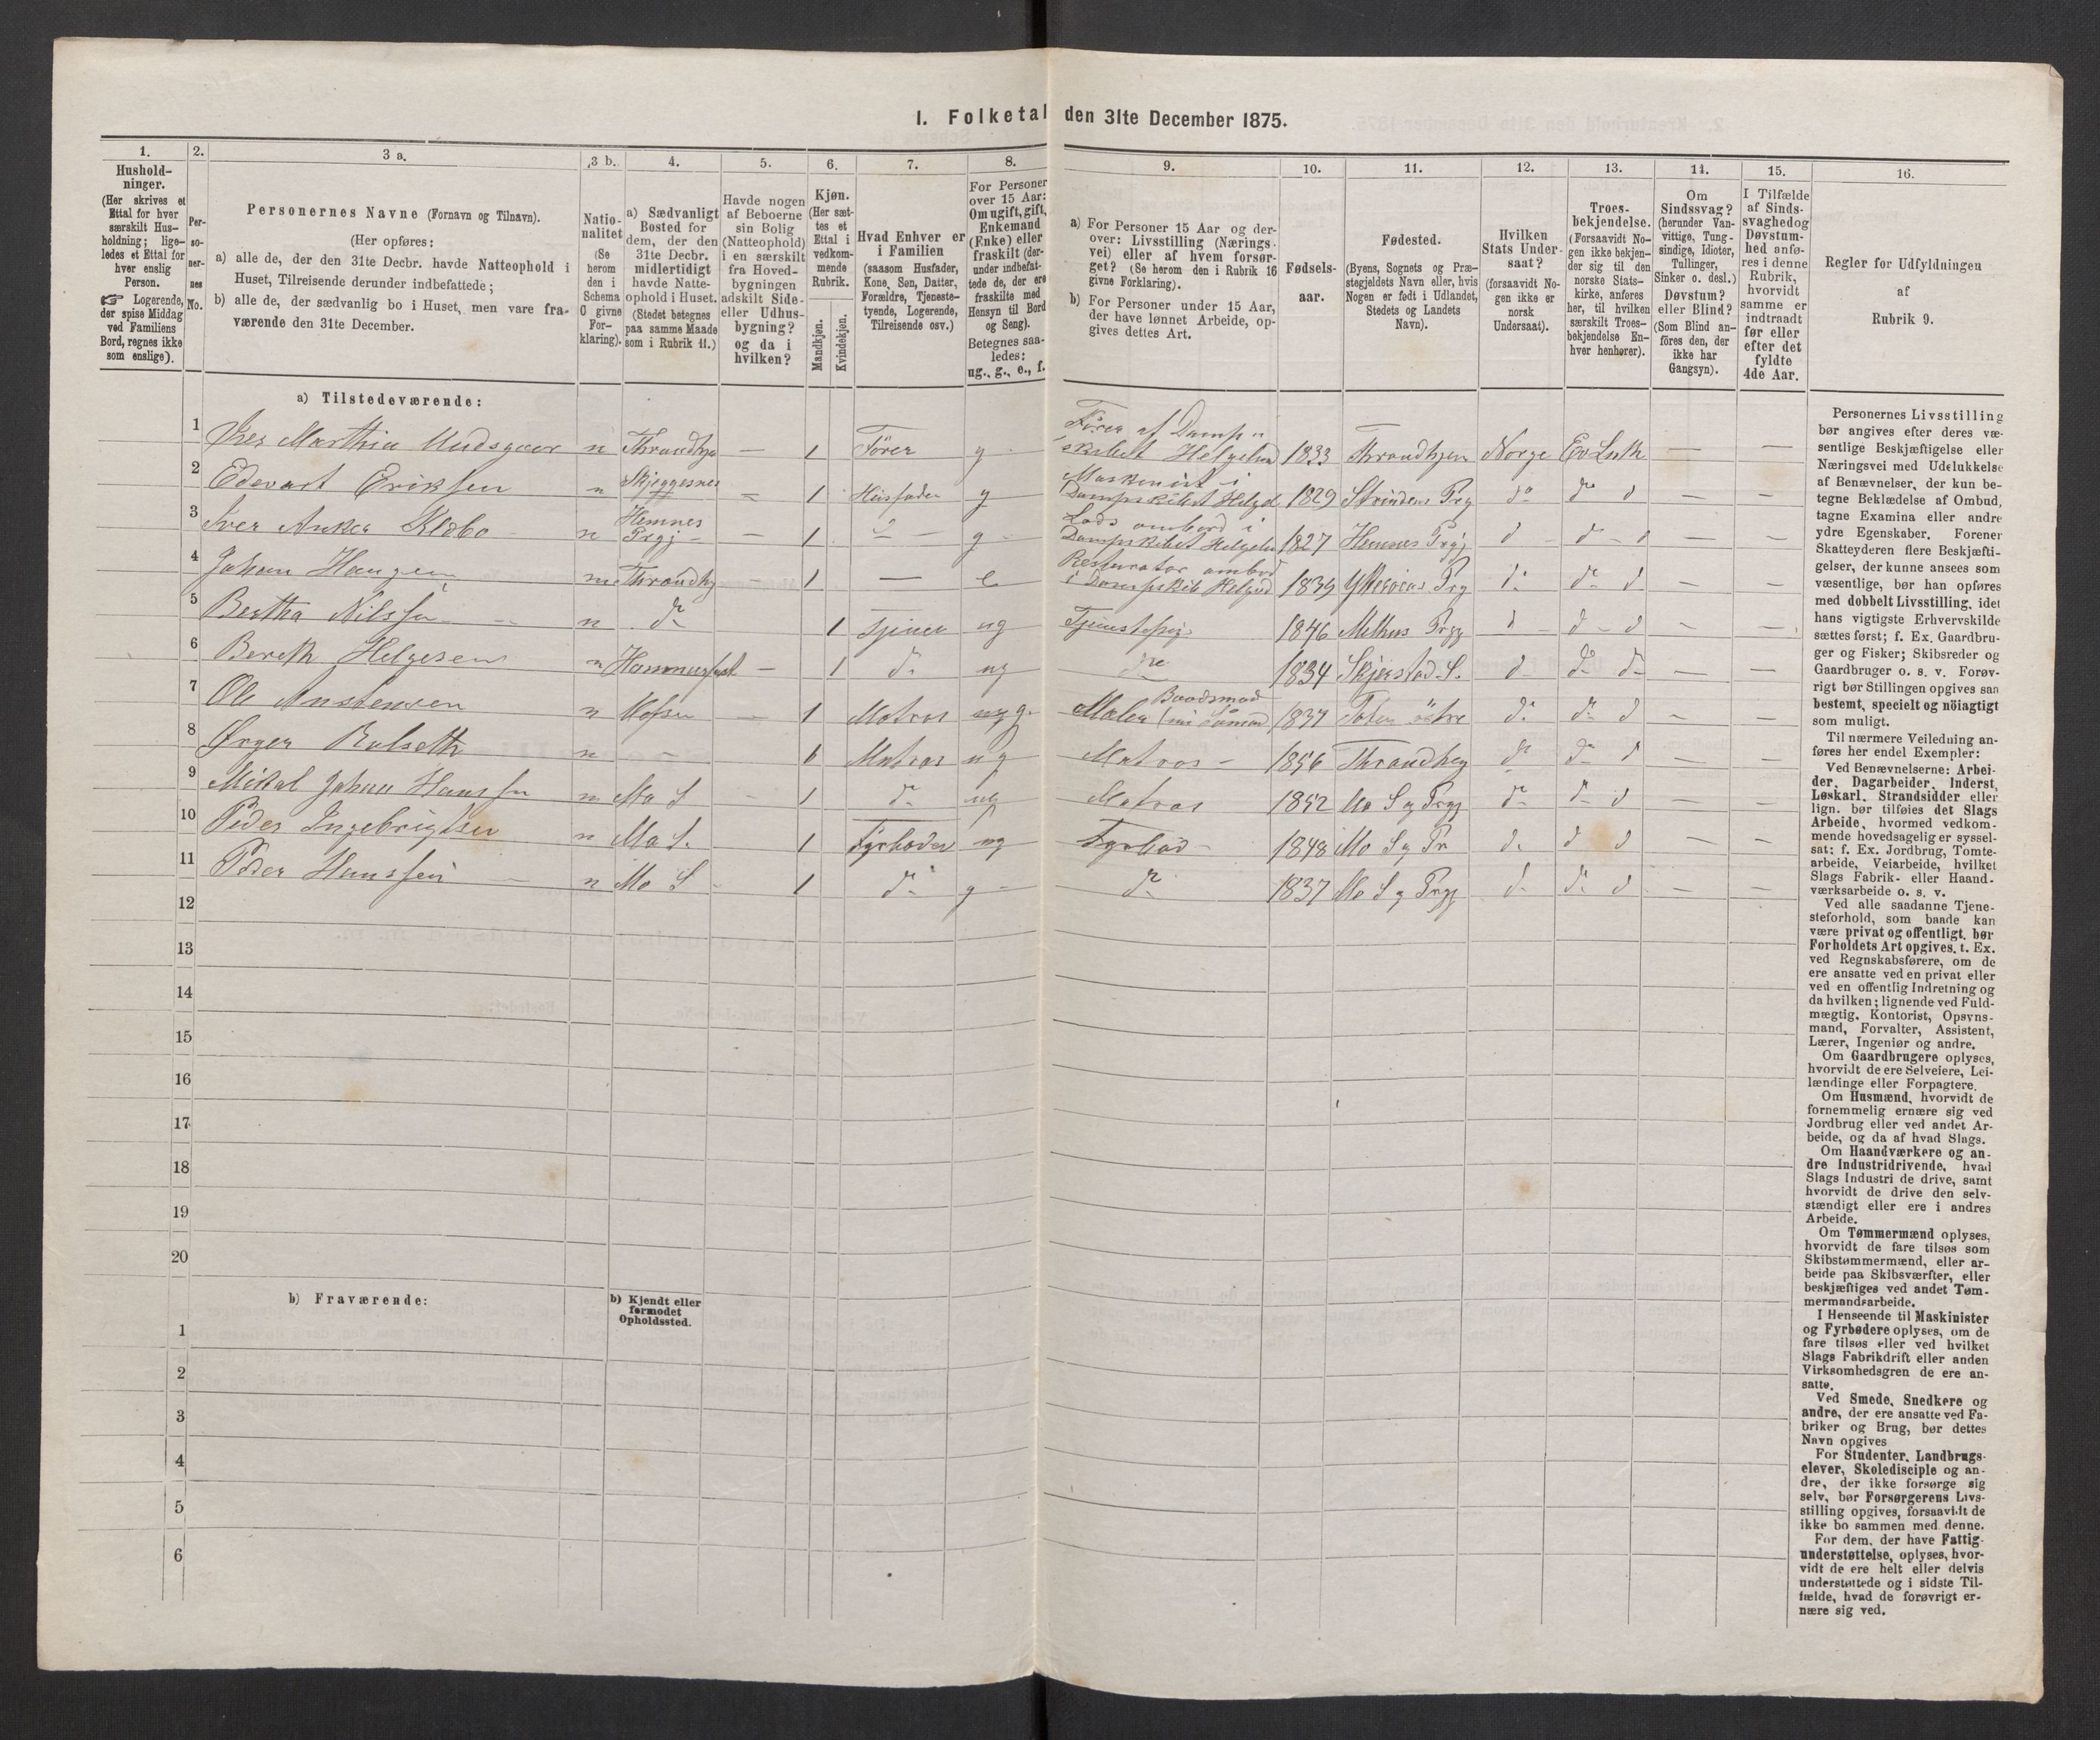 I. Folketal den 31te December 1875.
1.
Hushold-
ninger.
(Her skrives et
Ettal for hver
særskilt Hus-
holdning; lige-
ledes et Ettal for
hver enslig
Person.
☞ Logerende,
der spise Middag
ved Familiens
Bord, regnes ikke
som enslige).
2.
Per-
so-
ner-
nes
No.
3 a.
Personernes Navne (Fornavn og Tilnavn).
(Her opføres:
a) alle de, der den 31te Decbr. havde Natteophold i
Huset, Tilreisende derunder indbefattede;
b) alle de, der sædvanlig bo i Huset, men vare fra-
værende den 31te December.
3 b.
Natio-
nalitet
(Se
herom
den i
Schema
C givne
For-
klaring).
4.
a) Sædvanligt
Bosted for
dem, der den
31te Decbr.
midlertidigt
havde Natte-
ophold i Huset.
(Stedet betegnes
paa samme Maade
som i Rubrik 11.)
5.
Havde nogen
af Beboerne
sin Bolig
(Natteophold)
i en særskilt
fra Hoved-
bygningen
adskilt Side-
eller Udhus-
bygning?
og da i
hvilken?
6.
Kjøn.
(Her sæt-
tes et
Ettal i
vedkom-
mende
Rubrik.
Mandkjøn.
Kvindekjøn.
7.
Hvad Enhver er
i Familien
(saasom Husfader,
Kone, Søn, Datter,
Forældre, Tjeneste-
tyende, Logerende,
Tilreisende osv.)
8.
For Personer
over 15 Aar:
Om ugift, gift,
Enkemand
(Enke) eller
fraskilt (der-
under indbefat-
tede de, der ere
fraskilte med
Hensyn til Bord
og Seng).
Betegnes saa-
ledes:
ug., g., e., f.
9.
a) For Personer 15 Aar og der-
over: Livsstilling (Nærings-
vei) eller af hvem forsør-
get? (Se herom den i Rubrik 16
givne Forklaring).
b) For Personer under 15 Aar,
der have lønnet Arbeide, op-
gives dettes Art.
10.
Fødsels-
aar.
11.
Fødested.
(Byens, Sognets og Præ-
stegjeldets Navn eller, hvis
Nogen er født i Udlandet,
Stedets og Landets
Navn).
12.
Hvilken
Stats Under-
saat?
(forsaavidt No-
gen ikke er
norsk
Undersaat).
13.
Troes-
bekjendelse.
(Forsaavidt No-
gen ikke bekjen-
der sig til den
norske Stats-
kirke, anføres
her, til hvilken
særskilt Troes-
bekjendelse En-
hver henhører).
14.
Om
Sindssvag?
(herunder Van-
vittige, Tung-
sindige, Idioter,
Tullinger,
Sinker o. desl.)
Døvstum?
eller Blind?
(Som Blind an-
føres den, der
ikke har
Gangsyn).
15.
I Tilfælde
af Sinds-
svaghed og
Døvstum-
hed anfø-
res i denne
Rubrik,
hvorvidt
samme er
indtraadt
før eller
efter det
fyldte
4de Aar.
16.
Regler for Udfyldningen
af
Rubrik 9.
a) Tilstedeværende:
1 Marthin n Thrandhj — 1 Fører g Fører af Damp- skibet Helgeland 1833 Thrandhjem Norge Ev Luth — —
2 Edevart Eriksen n Skjeggesnes — 1 Husfader g Maskinist i Dampskibet Helgel 1829 Strindens Prg do do d — —
3 Iver Anker Klæbo n Hemnes Prgj — 1 — g Lods ombord i Dampskibet Helgelan 1827 Hemnes Prgj d d d — —
4 Johan Haugen n Thrandhj — 1 — e Resturatør ombord i Dampskib Helgld 1839 Prg do do d — —
5 Bertha Nilssen n do 1 Tjener ug Tjenstepig 1846 Melhus Prgj d d d — —
6 Bereth Helgesen n Hammerfest — 1 do ug do 1834 Skjerstad S. d do do — —
7 Ole Anstensen n — 1 Matros g Maler Baadsmad 1837 Toten østre do do d — —
8 Ørger Balseth n — 1 Matros ug Matros 1856 Thrandhej do do d — —
9 Mikal Johan Hanssen n Mo S — 1 do ug Matros 1852 Mo S og Prgj do do d — —
10 Peder Ingebrigtsen n Mo S. 1 Fyrbøder ug Fyrbød 1848 Mo S og Pr d. d d — —
11 Peder Hanssen n Mo S 1 do g do 1837 Mo S og Prgj d do d — —
12
13
14
15
16
17
18
19
20
b) Fraværende:
b) Kjendt eller
formodet
Opholdssted.
1
2
3
4
5
6
Personernes Livsstilling
bør angives efter deres væ-
sentlige Beskjæftigelse eller
Næringsvei med Udelukkelse
af Benævnelser, der kun be-
tegne Beklædelse af Ombud,
tagne Examina eller andre
ydre Egenskaber. Forener
Skatteyderen flere Beskjæfti-
gelser, der kunne ansees som
væsentlige, bør han opføres
med dobbelt Livsstilling, idet
hans vigtigste Erhvervskilde
sættes først; f. Ex. Gaardbru-
ger og Fisker; Skibsreder og
Gaardbruger o. s. v. Forøv-
rigt bør Stillingen opgives saa
bestemt, specielt og nöiagtigt
som muligt.
Til nærmere Veiledning an-
føres her endel Exempler:
Ved Benævnelserne: Arbei-
der, Dagarbeider, Inderst,
Løskarl, Strandsidder eller
lign. bør tilføies det Slags
Arbeide, hvormed vedkom-
mende hovedsagelig er syssel-
sat; f. Ex. Jordbrug, Tomte-
arbeide, Veiarbeide, hvilket
Slags Fabrik- eller Haand-
værksarbeide o. s. v.
Ved alle saadanne Tjene-
steforhold, som baade kan
være privat og offentligt, bør
Forholdets Art opgives, t. Ex.
ved Regnskabsførere, om de
ere ansatte ved en privat eller
ved en offentlig Indretning og
da hvilken; lignende ved Fuld-
mægtig, Kontorist, Opsyns-
mand, Forvalter, Assistent,
Lærer, Ingeniør og andre.
Om Gaardbrugere oplyses,
hvorvidt de ere Selveiere, Lei-
lændinge eller Forpagtere.
Om Husmænd, hvorvidt de
fornemmelig ernære sig ved
Jordbrug eller ved andet Ar-
beide, og da af hvad Slags.
Om Haandværkere og an-
dre Industridrivende, hvad
Slags Industri de drive, samt
hvorvidt de drive den selv-
stændigt eller ere i andres
Arbeide.
Om Tømmermænd oplyses,
hvorvidt de fare tilsøs som
Skibstømmermænd, eller ar-
beide paa Skibsværfter, eller
beskjæftiges ved andet Tøm-
mermandsarbeide.
I Henseende til Maskinister
og Fyrbødere oplyses, om de
fare tilsøs eller ved hvilket
Slags Fabrikdrift eller anden
Virksomhedsgren de ere an-
satte.
Ved Smede, Snedkere og
andre, der ere ansatte ved Fa-
briker og Brug, bør dettes
Navn opgives
For Studenter, Landbrugs-
elever, Skoledisciple og an-
dre, der ikke forsørge sig
selv, bør Forsørgerens Livs-
stilling opgives, forsaavidt de
ikke bo sammen med denne.
For dem, der have Fattig-
understøttelse, oplyses, hvor-
vidt de ere helt eller delvis
understøttede og i sidste Til-
fælde, hvad de forøvrigt er-
nære sig ved.